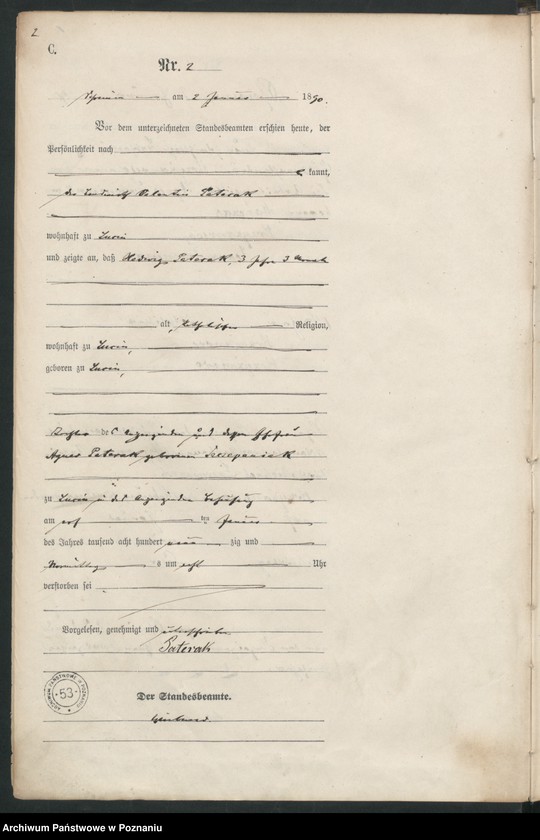 2
C.
Nr. 2
am 2 Januar 1890.
Vor dem unterzeichneten Standesbeamten erschien heute, der
Persönlichkeit nach
kannt,
der Landwirth Valentin Paterak
wohnhaft zu
und zeigte an, daß Hedwig Paterak, 3 Jahre 3 Monate
alt, katholischer Religion,
wohnhaft zu
geboren zu
Tochter des Anzeigenden und dessen Ehefrau
Agnes Paterak geborenen Szczepaniak
zu in des Anzeigenden Behausung
am ten Januar
des Jahres tausend acht hundert neun zig und
Vormittags um acht Uhr
verstorben sei
Vorgelesen, genehmigt und unterschrieben
Paterak
Der Standesbeamte.
ARCHIWUM PAŃSTWOWE W POZNANIU
53
Archiwum Państwowe w Poznaniu